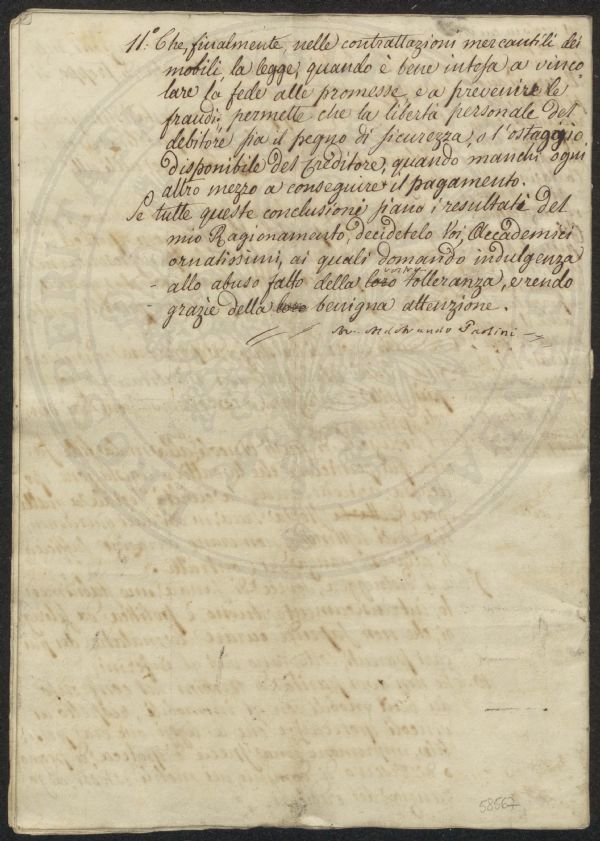 11.° Che, finalmente, nelle contrattazioni mercantili dei
mobili, la legge, quando è bene intesa a vinco-
lare la fede alle promesse, e a prevenire le
fraudi, permette che la libertà personale del
debitore sia il pegno di sicurezza, o l'ostaggio
disponibile del Creditore, quando manchi ogni
altro mezzo a conseguire il pagamento.
Se tutte queste conclusioni siano i resultati del
mio Ragionamento, decidetelo Voi, Accademici
ornatissimi, ai quali domando indulgenza
allo abuso fatto della loro vostra tolleranza, e rendo
grazie della loro benigna attenzione.
Aldobrando Paolini
58567